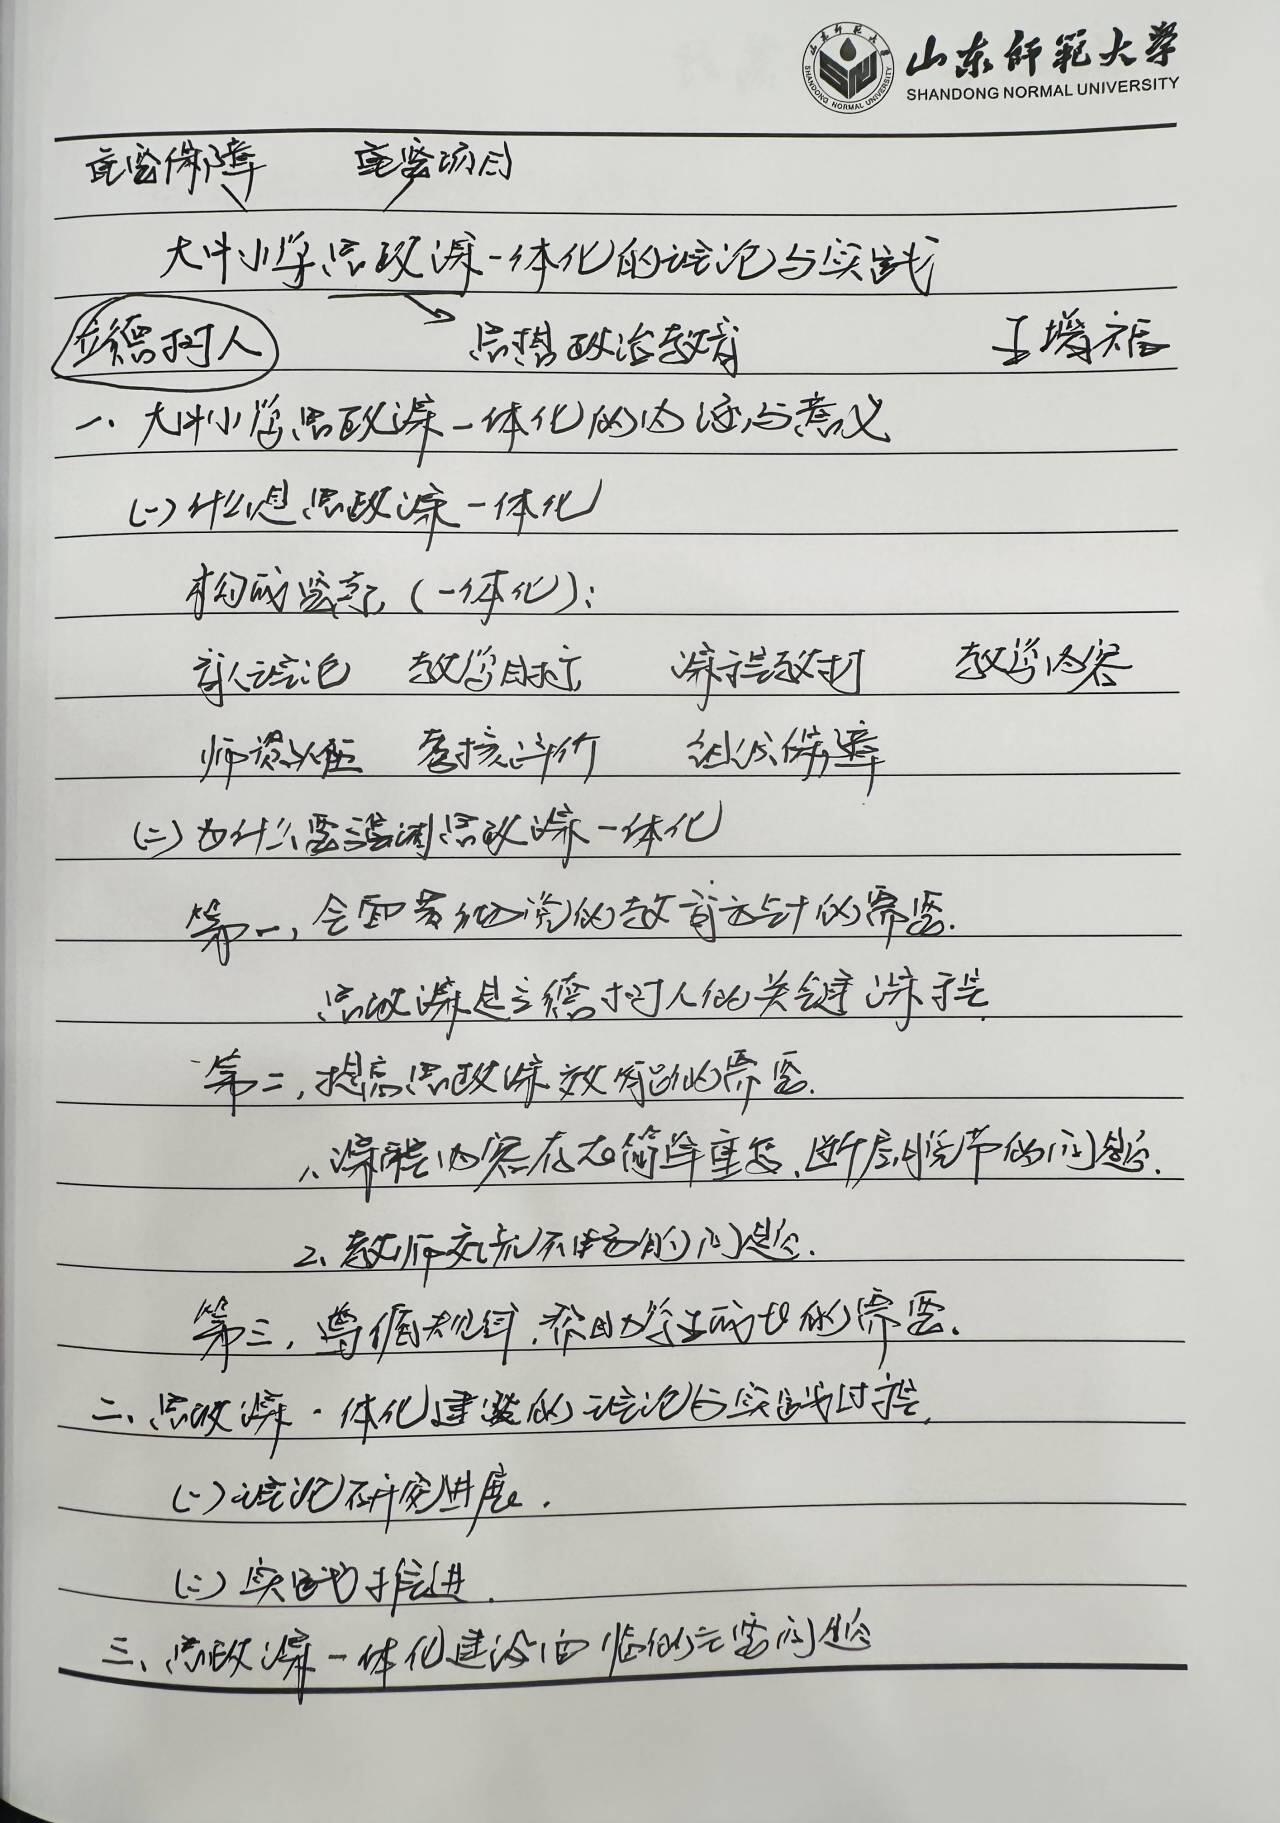 山东师范大学
SHANDONG NORMAL UNIVERSITY
重要保障 重要项目
大中小学思政课一体化的理论与实践
立德树人 思想政治教育 王增福
一、大中小学思政课一体化的内涵与意义
(一)什么是思政课一体化
构成要素(一体化):
育人理论 教学目标 课程教材 教学内容
师资队伍 考核评价 组织保障
(二)为什么要强调思政课一体化
第一,全面贯彻党的教育方针的需要.
思政课是立德树人的关键课程.
第二,提高思政课效能的需要.
1、课程内容存在简单重复、断层脱节的问题.
2、教师交流不畅的问题.
第三,遵循规律,帮助学生成长的需要.
二、思政课一体化建设的理论与实践过程.
(一)理论研究进展.
(二)实践推进.
三、思政课一体化建设面临的主要问题